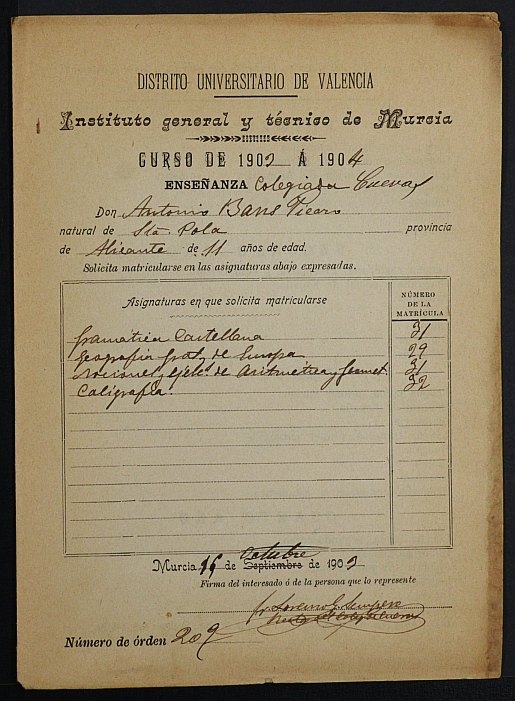 DISTRITO UNIVERSITARIO DE VALENCIA
Instituto general y técnico de Murcia
CURSO DE 1902 Á 1904
ENSEÑANZA Colegiada Cuevas
Don Antonio Bans
natural de Sta Pola provincia
de Alicante de 11 años de edad.
Solicita matricularse en las asignaturas abajo expresadas.
Asignaturas en que solicita matricularse
NÚMERO DE LA MATRÍCULA
Gramática Castellana 31
Geografía gral y de Europa 29
Nociones y ejerc. de Aritmética y Geomet. 31
Caligrafía. 32
Murcia 16 de Septiembre Octubre de 1902
Firma del interesado ó de la persona que lo represente
Número de órden 209